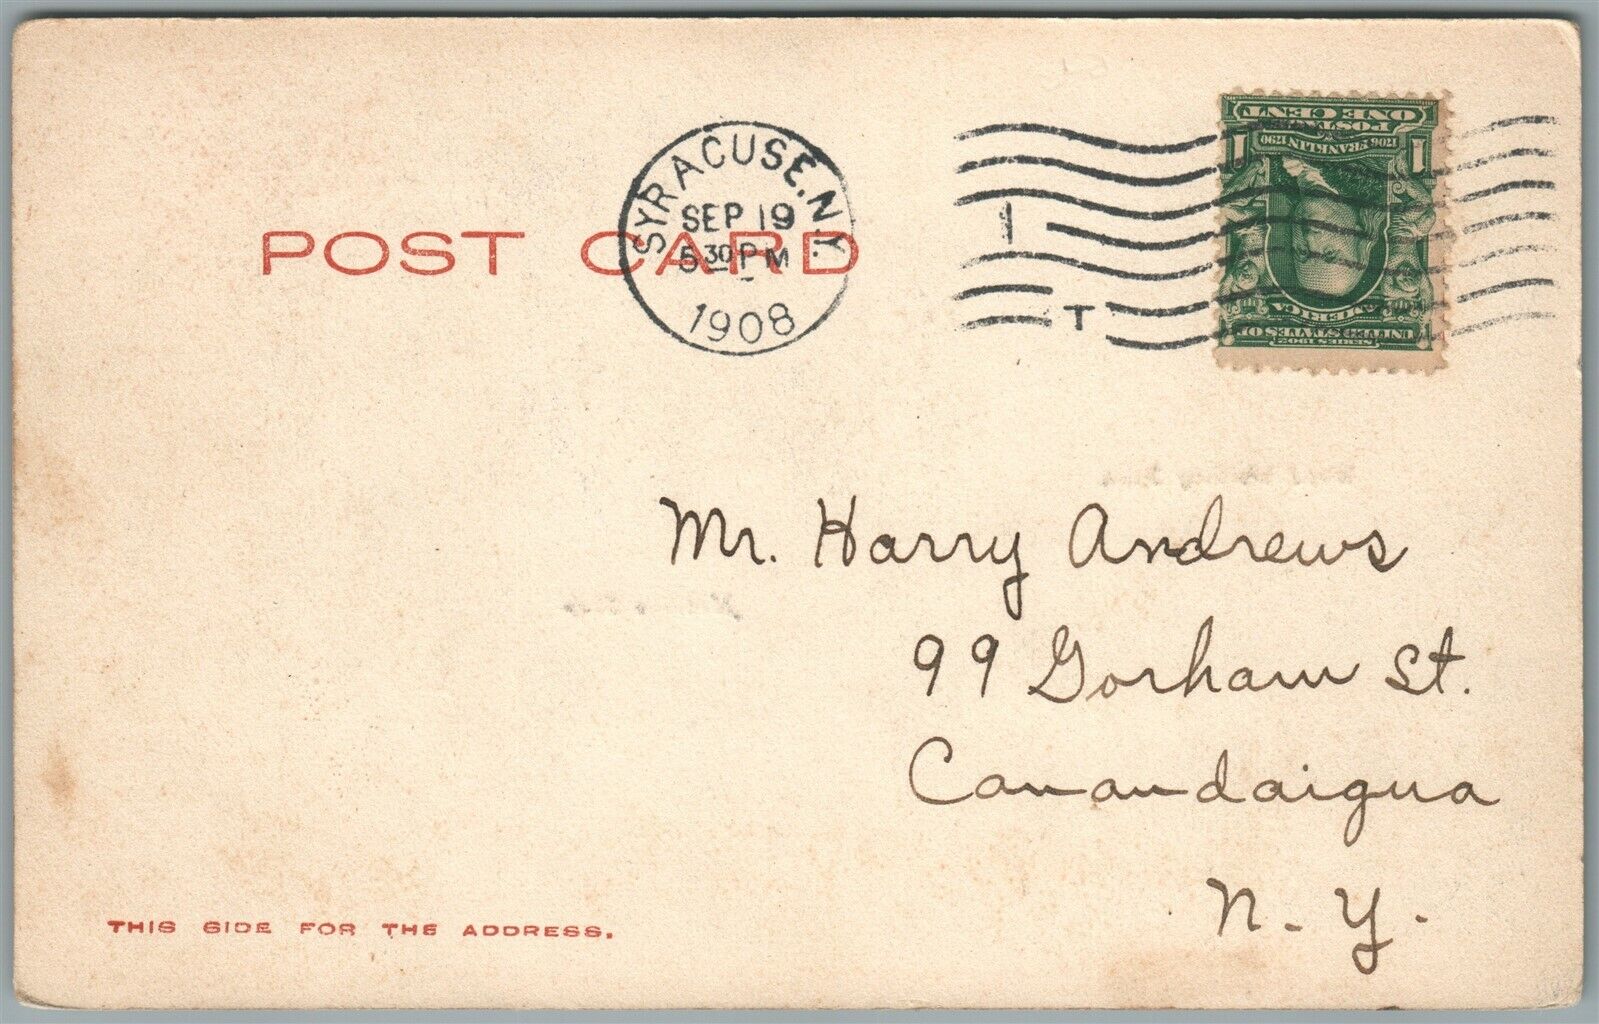 SYRACUSE, N.Y.
SEP 19
5 30 PM
1908
1
T
ONE CENT
POSTAGE
1706 FRANKLIN 1790
1 1
AMERICA
UNITED STATES OF
SERIES 1902
POST CARD
Mr. Harry Andrews
99 Gorham St.
Canandaigua
N. Y.
THIS SIDE FOR THE ADDRESS.